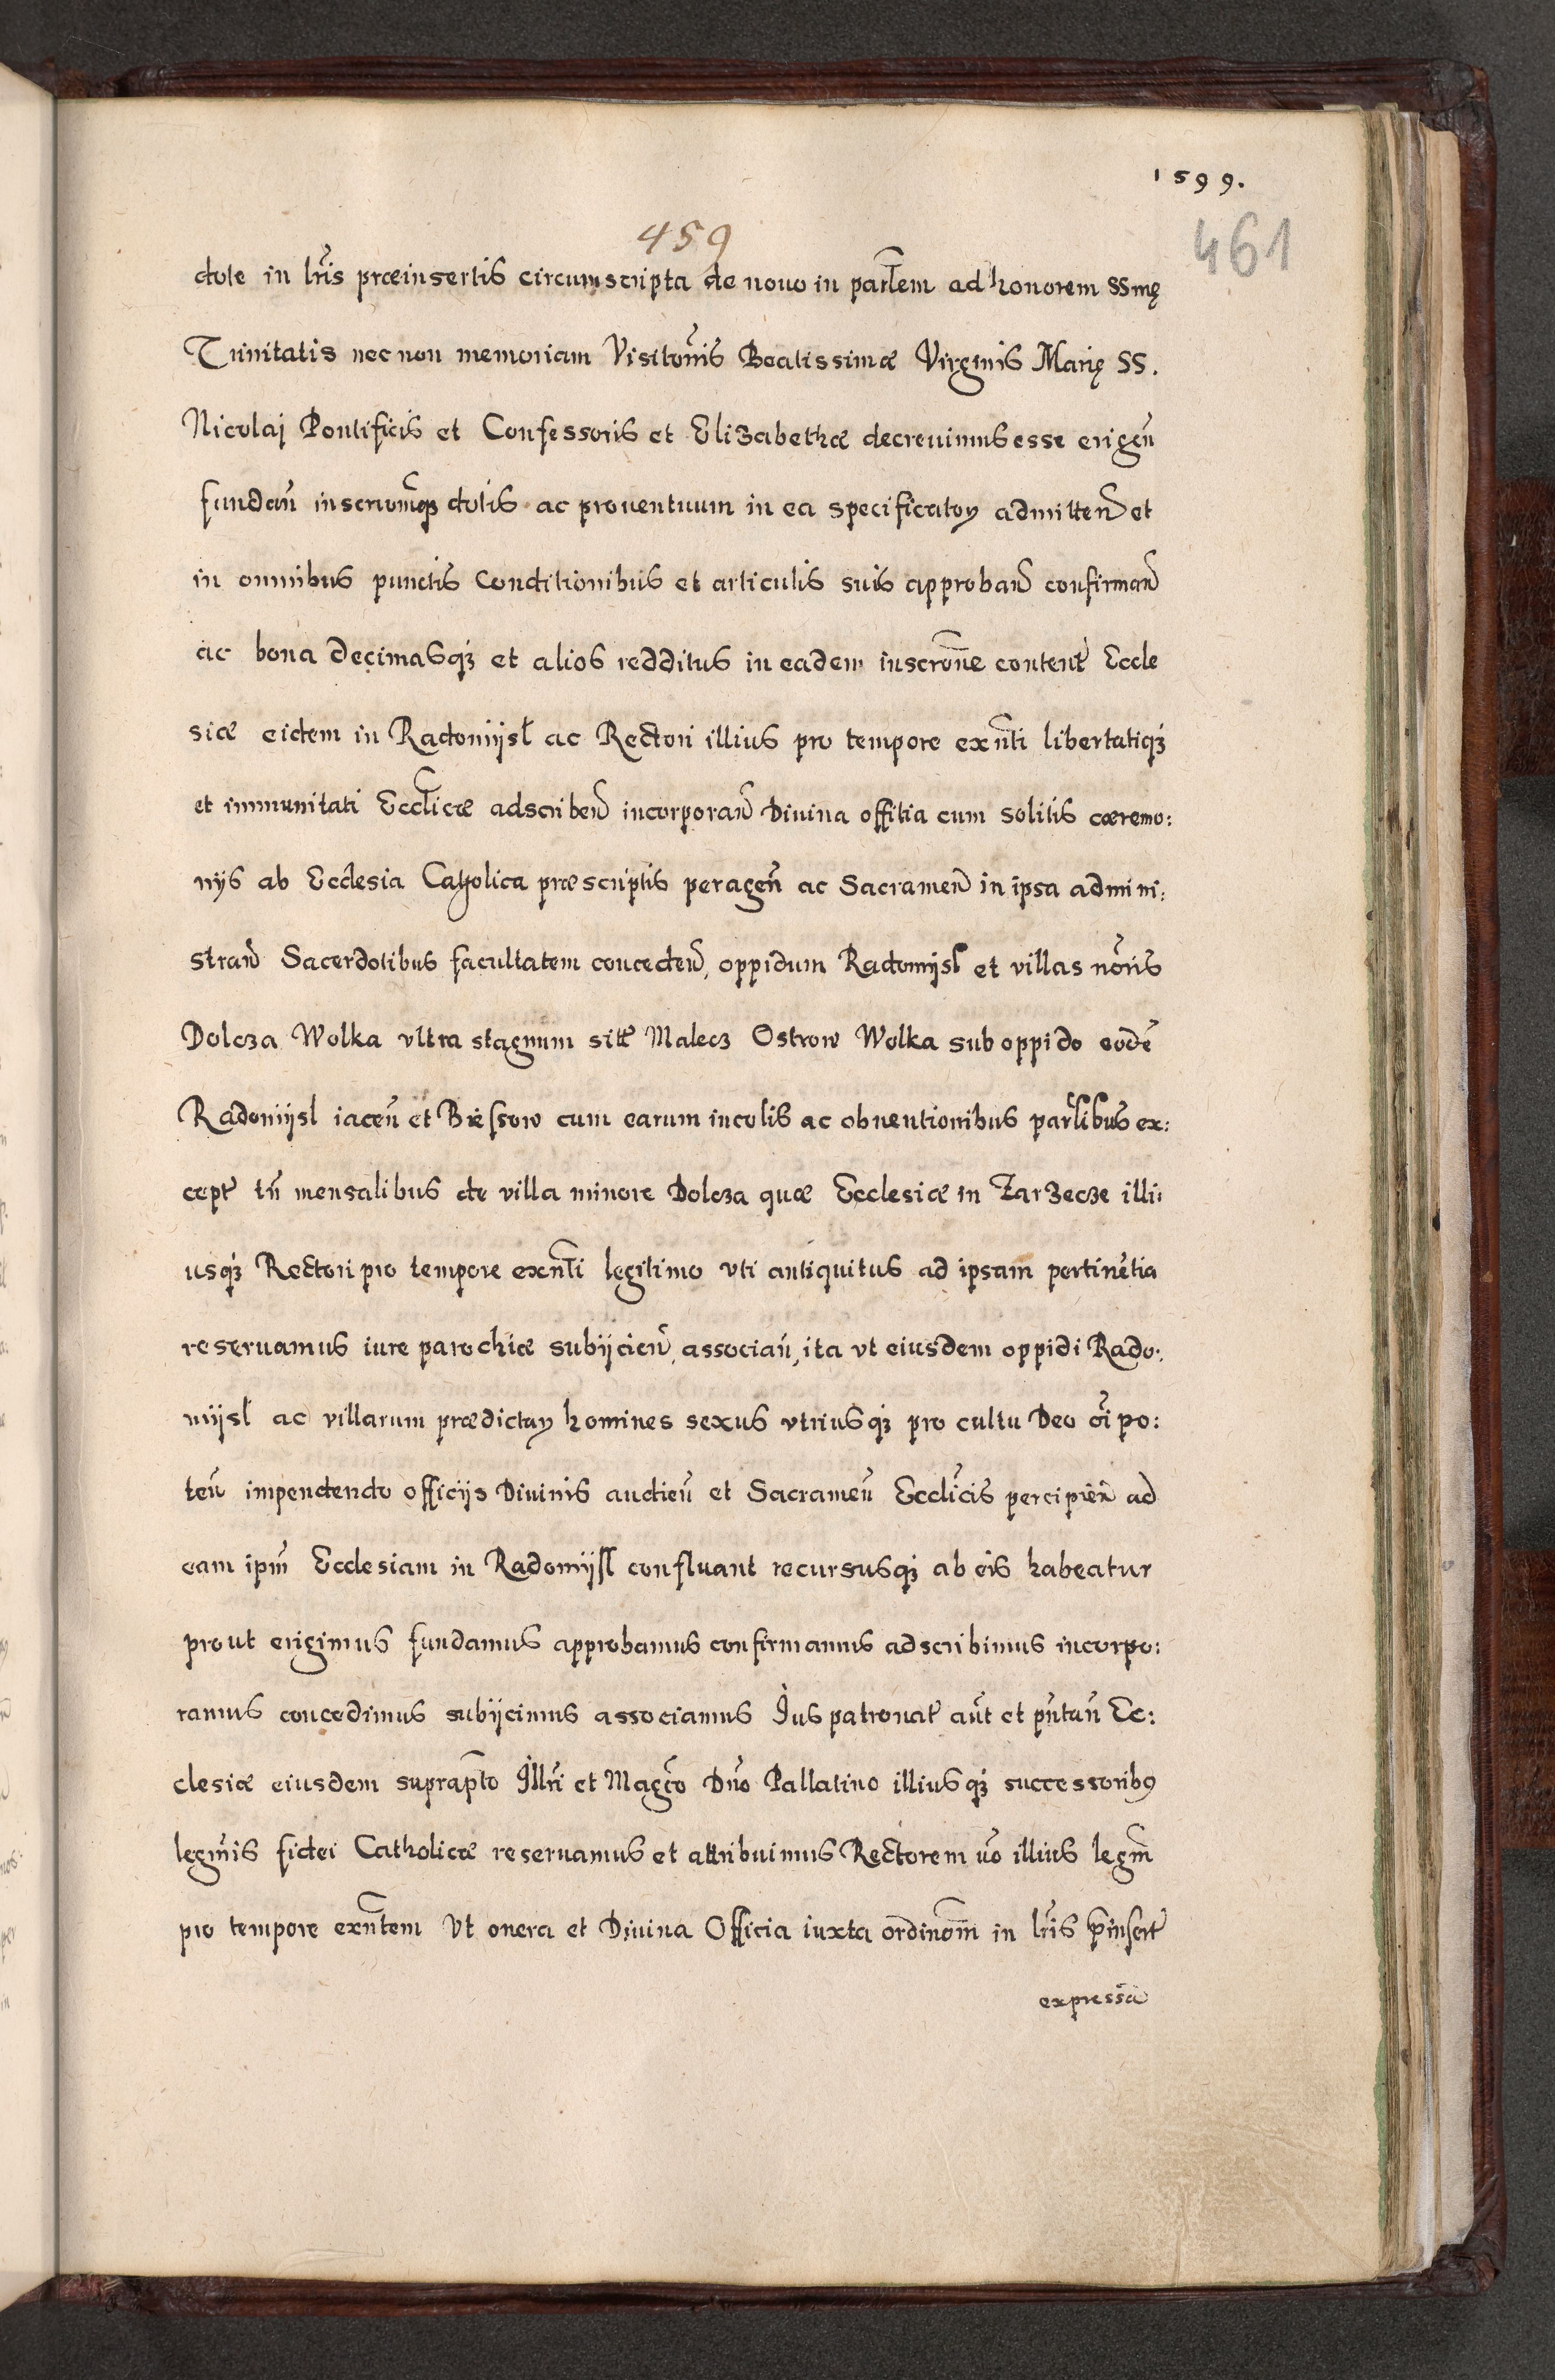 1599.
459
461
dote in lr̃is præinsertis circumscripta de nouo in par̃lem ad honorem SSmę
Trinitatis nec non memoriam Visitõnis Beatissimæ Virginis Marię SS.
Nicolaj Pontificis et Confessoris et Elizabethæ decreuimus esse erigeñ
fundañ inscriõnemq̃ dotis ac prouentuum in ea specificatoꝝ admitteñ et
in omnibus punctis Conditionibus et articulis suis approbañ confirmañ
ac bona decimasqꝫ et alios redditus in eadem inscrõne content̃ Eccle
siæ eidem in Radomijsl ac Rectori illius pro tempore exñti libertatiqꝫ
et immunitati Eccl̃icæ adscribeñ incorporañ Diuina offitia cum solitis cæremo:
nijs ab Ecclesia Catholica præscriptis perageñ ac Sacrameñ in ipsa admini:
strañ Sacerdotibus facultatem concedeñ, oppidum Radomijsl et villas nõris
Dolcza Wolka vltra stagnum sitt̃ Malecz Ostrow Wolka sub oppido eodẽ
Radomijsl iaceñ et Bressow cum earum incolis ac obuentionibus par̃libus ex:
cept̃ tñ mensalibus de villa minore Dolcza quæ Ecclesiæ in Zarzecze illi:
usqꝫ Rectori pro tempore exñti legitimo vti antiquitus ad ipsam pertinẽtia
reseruamus iure parochiæ subijcieñ, associañ, ita vt eiusdem oppidi Rado:
mijsl ac villarum prædictaꝝ homines sexus vtriusqꝫ pro cultu Deo õipo:
teñ impendendo officijs Diuinis audieñ et Sacrameñ Eccl̃icis percipieñ ad
eam ipm̃ Ecclesiam in Radomijsl confluant recursusqꝫ ab eis habeatur
prout erigimus fundamus approbamus confirmamus adscribimus incorpo:
ramus concedimus subijcimus associamus Jus patronat̃ aũt et pñtañ Ec:
clesiæ eiusdem suprap̃to Illr̃i et Magc̃o Dño Pallatino illiusqꝫ successoribꝰ
legm̃is fidei Catholicæ reseruamus et attribuimus Rectorem ṽo illius legm̃
pro tempore exñtem Vt onera et Diuina Officia iuxta ordinõm in lr̃is p̃insert̃
expressã